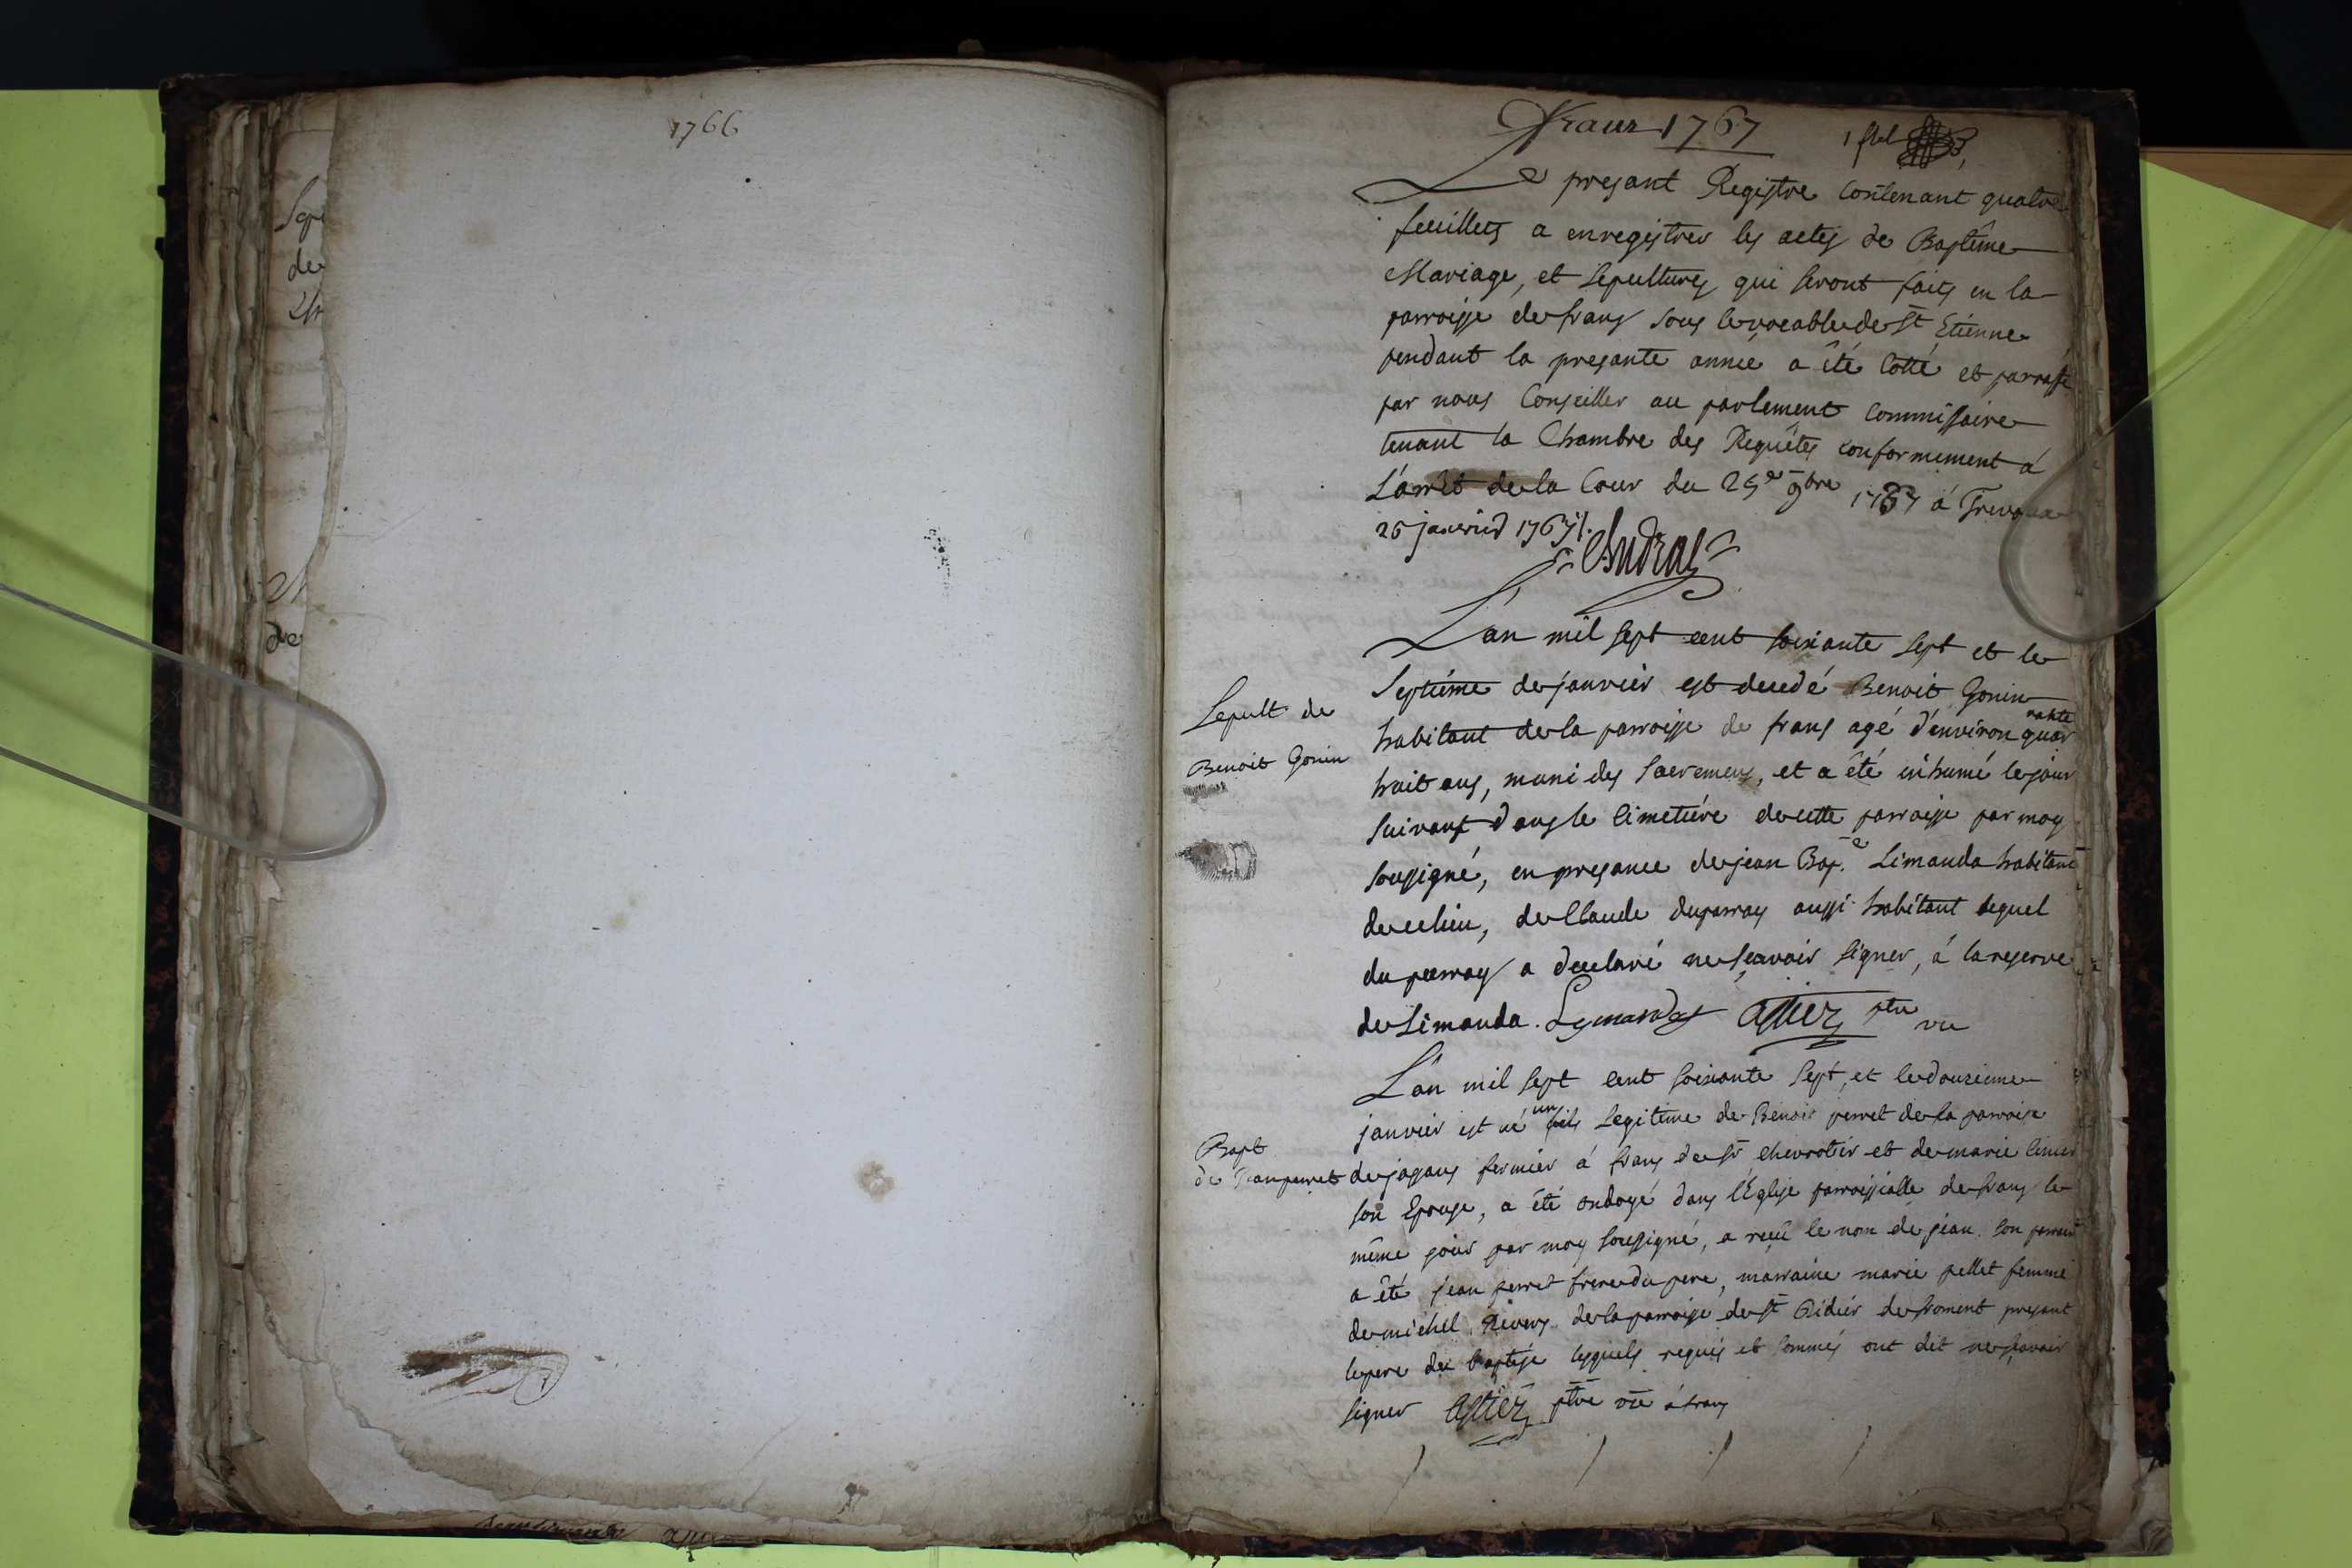 1766
Sep
de
de
Frans 1767
Le presant Registre contenant quatre
feuillets a enregistrer les actes de Baptême
Mariage, et sepultures qui seront faits en la
parroisse de frans sous le vocable de St Etienne
pendant la presante année a été Cotté et parraffé
par nous Conseiller au parlement Commissaire
tenant la Chambre des Requêtes conformement á
L'arrêt de la Cour du 25e 9bre 1757 á Trevoux
26 janvier 1767 /.
Andras
L'an mil sept cent soixante sept et le
Septiéme de janvier est decedé Benoit Gonin
Sepult de
Benoit Gonin
habitant de la parroisse de frans agé d'environ quarrante
huit ans, muni des sacremens, et a été inhumé le jour
suivant dans le Cimetiére de cette parroisse par moy
soussigné, en presance de jean Bap.e Limanda habitant
de ce lieu, de Claude duperray aussi habitant lequel
du perray a declaré ne sçavoir signer, á la reserve
de Limanda. Lymandas astier ptre vic
L'an mil sept cent soixante sept, et le douzieme
janvier est né un fils Legitime de Benoit perret de la parroisse
Bapt
de Jean perret
de jassans fermier á frans de Sr chevrotier et de marie
son Epouse, a été ondoyé dans l'Église parroissialle de frans le
même jour par moy soussigné, a reçû le nom de jean. son parrain
a été jean perret frere du pere, marraine marie pellet femme
de michel de la parroisse de St Didier de froment presant
le pere du baptisé lesquels requis et sommés ont dit ne sçavoir
signer astier ptre vic á frans